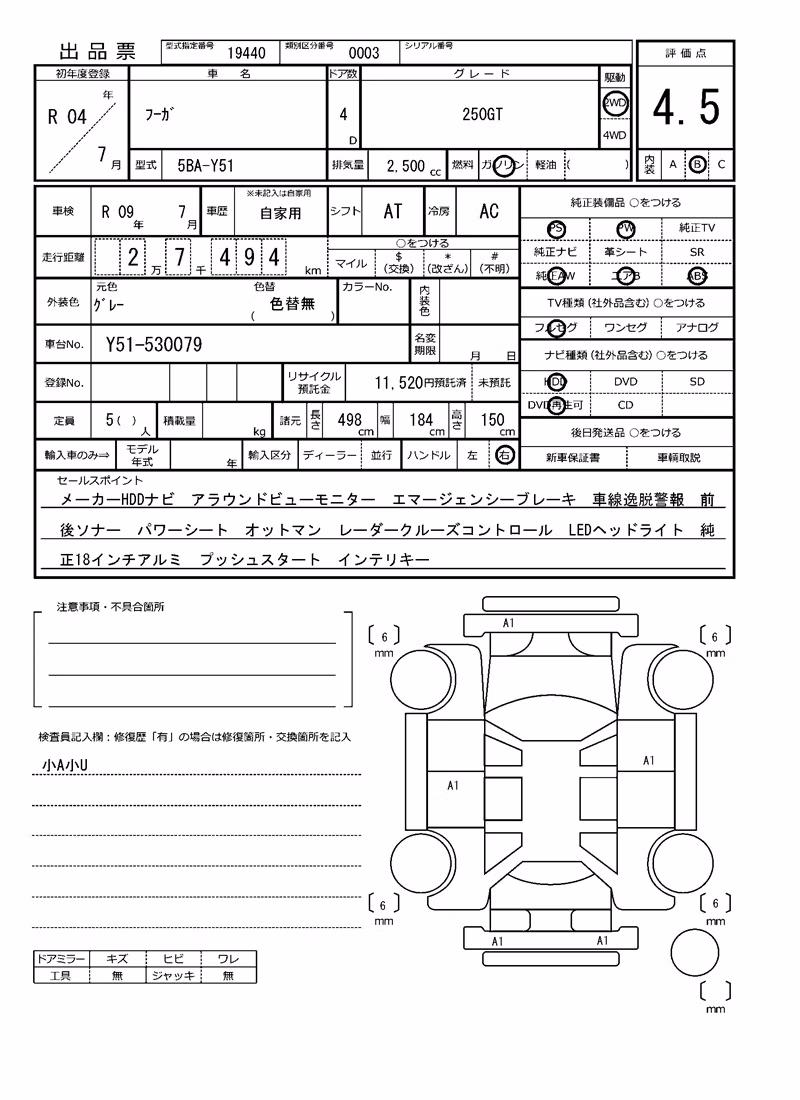 出品票 型式指定番号 19440 類別区分番号 0003 シリアル番号
評価点
4.5
内装 A B C
初年度登録 車名 ドア数 グレード 駆動
R 04 年 7 月 フーガ 4 D 250GT 2WD
4WD
型式 5BA-Y51 排気量 2,500 cc 燃料 ガソリン 軽油 ( )
車検 R 09 年 7 月 車歴 ※未記入は自家用 自家用 シフト AT 冷房 AC
走行距離 2 万 7 千 4 9 4 km ○をつける
マイル $(交換) *(改ざん) #(不明)
外装色 元色 グレー 色替 ( 色替無 ) カラーNo. 内装色
車台No. Y51-530079 名変期限 月 日
登録No. リサイクル預託金 11,520円預託済 未預託
定員 5( ) 人 積載量 kg 諸元 長さ 498 cm 幅 184 cm 高さ 150 cm
輸入車のみ⇒ モデル年式 年 輸入区分 ディーラー 並行 ハンドル 左 右
純正装備品 ○をつける
PS PW 純正TV
純正ナビ 革シート SR
純正AW エアB ABS
TV種類(社外品含む)○をつける
フルセグ ワンセグ アナログ
ナビ種類(社外品含む)○をつける
HDD DVD SD
DVD再生可 CD
後日発送品 ○をつける
新車保証書 車輌取説
セールスポイント
メーカーHDDナビ アラウンドビューモニター エマージェンシーブレーキ 車線逸脱警報 前
後ソナー パワーシート オットマン レーダークルーズコントロール LEDヘッドライト 純
正18インチアルミ プッシュスタート インテリキー
注意事項・不具合箇所
検査員記入欄:修復歴「有」の場合は修復箇所・交換箇所を記入
小A小U
ドアミラー キズ ヒビ ワレ
工具 無 ジャッキ 無
A1
6 mm
6 mm
A1
A1
6 mm
6 mm
A1 A1
mm